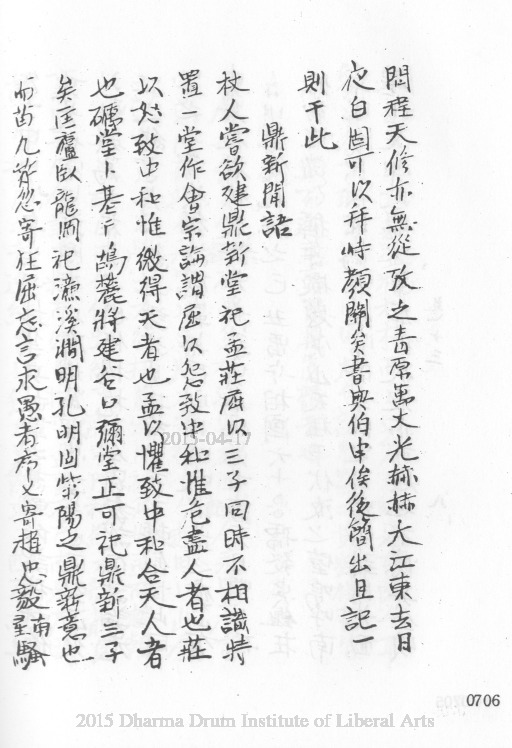 問程天修亦無從攷之青原萬丈光赫赫大江東去日
夜白固可以拜時顏關矣書與伯申俟後簡出且記一
則于此
鼎新閒語
杖人嘗欲建鼎薪堂祀孟莊屈以三子同時不相識特
置一堂作會宗論謂屈以怨致中和惟危盡人者也莊
以怒致中和惟微得天者也孟以懼致中和合天人者
也礀堂卜基於鵠麓將建谷口彌堂正可祀鼎新三子
矣匡廬臥龍岡祀濂溪淵明孔明因紫陽之鼎薪意也
而苗九符悠寄狂屈忘言求愚者席乂寄趙忠毅南星騷
2015-04-17
0706
2015 Dharma Drum Institute of Liberal Arts